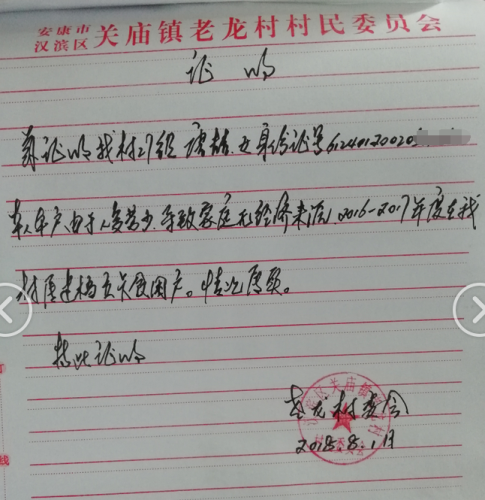 安康市
汉滨区 关庙镇老龙村村民委员会
证 明
兹证明我村27组 身份证号612401200205
本人本户,由于人多劳少,导致家庭无经济来源,2016-2017年度在我
村属建档立卡贫困户。情况属实。
特此证明
老龙村委会
2018.8.1日